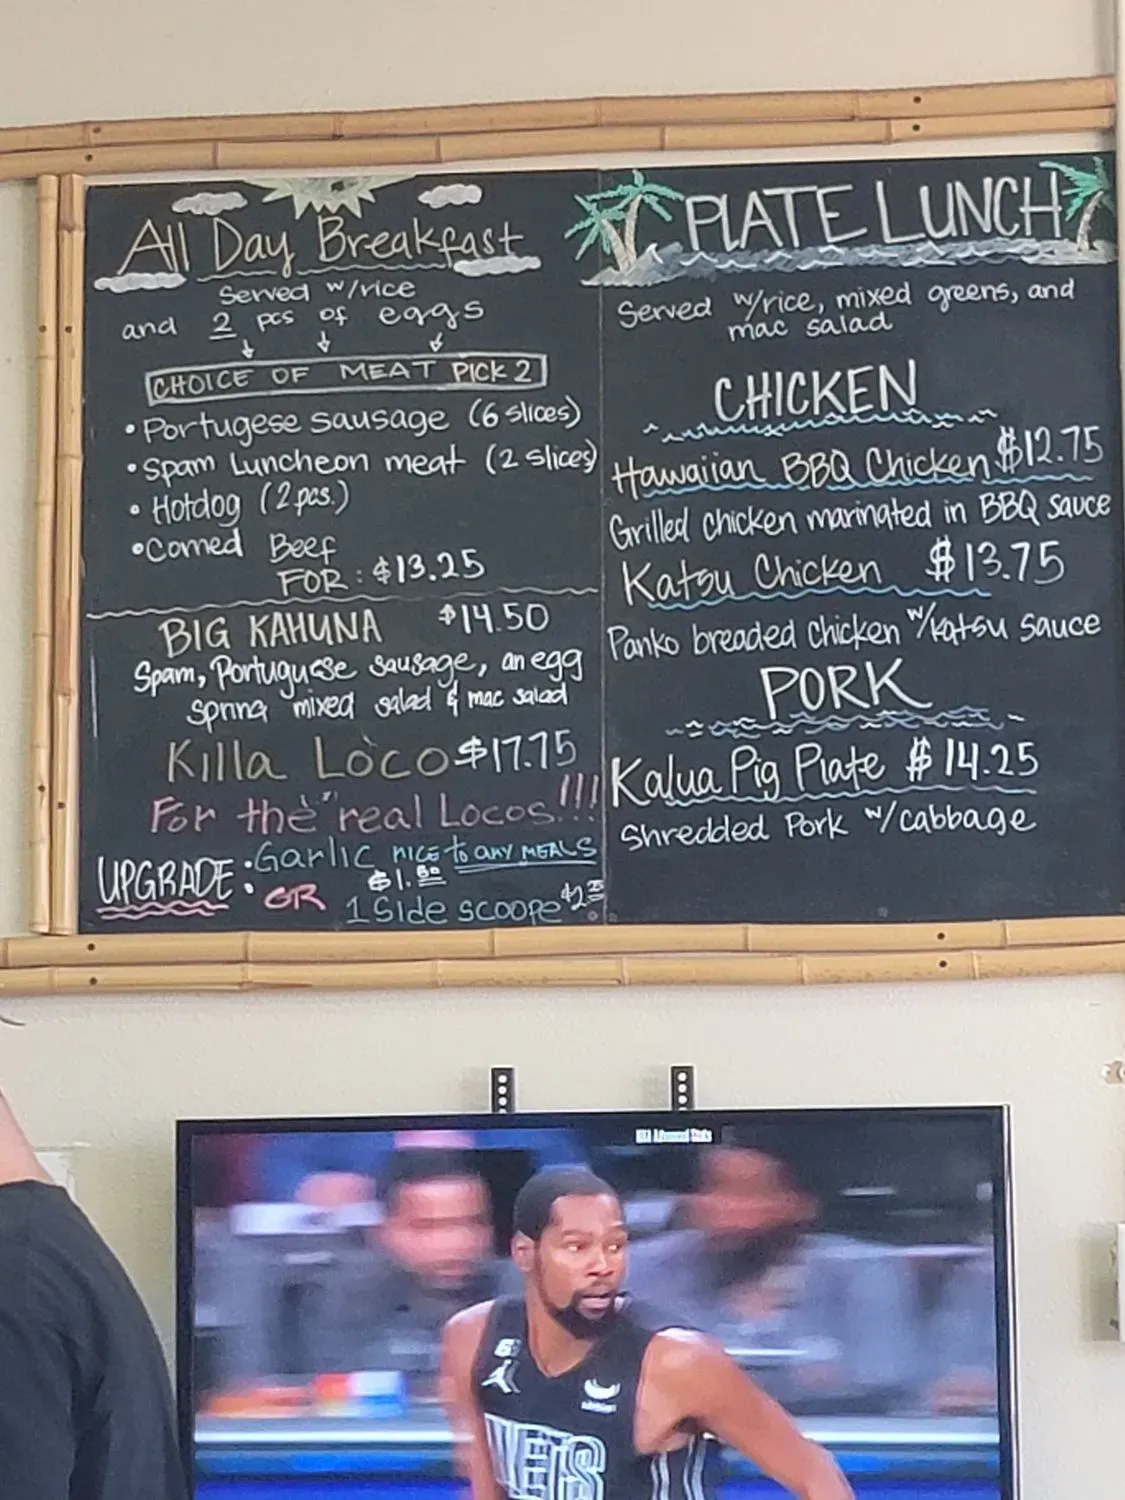 All Day Breakfast
Served w/rice
and 2 pcs of eggs
CHOICE OF MEAT PICK 2
• Portugese sausage (6 slices)
• Spam Luncheon meat (2 slices)
• Hotdog (2 pcs.)
• Corned Beef
FOR: $13.25
BIG KAHUNA $14.50
Spam, Portuguese sausage, an egg
spring mixed salad & mac salad
Killa Loco $17.75
For the "real Locos!!!
UPGRADE: • Garlic rice to any MEALS
$1.50
OR 1 Side scoope $2.25
PLATE LUNCH
Served w/rice, mixed greens, and
mac salad
CHICKEN
Hawaiian BBQ Chicken $12.75
Grilled chicken marinated in BBQ sauce
Katsu Chicken $13.75
Panko breaded chicken w/katsu sauce
PORK
Kalua Pig Plate $14.25
Shredded Pork w/cabbage
NETS